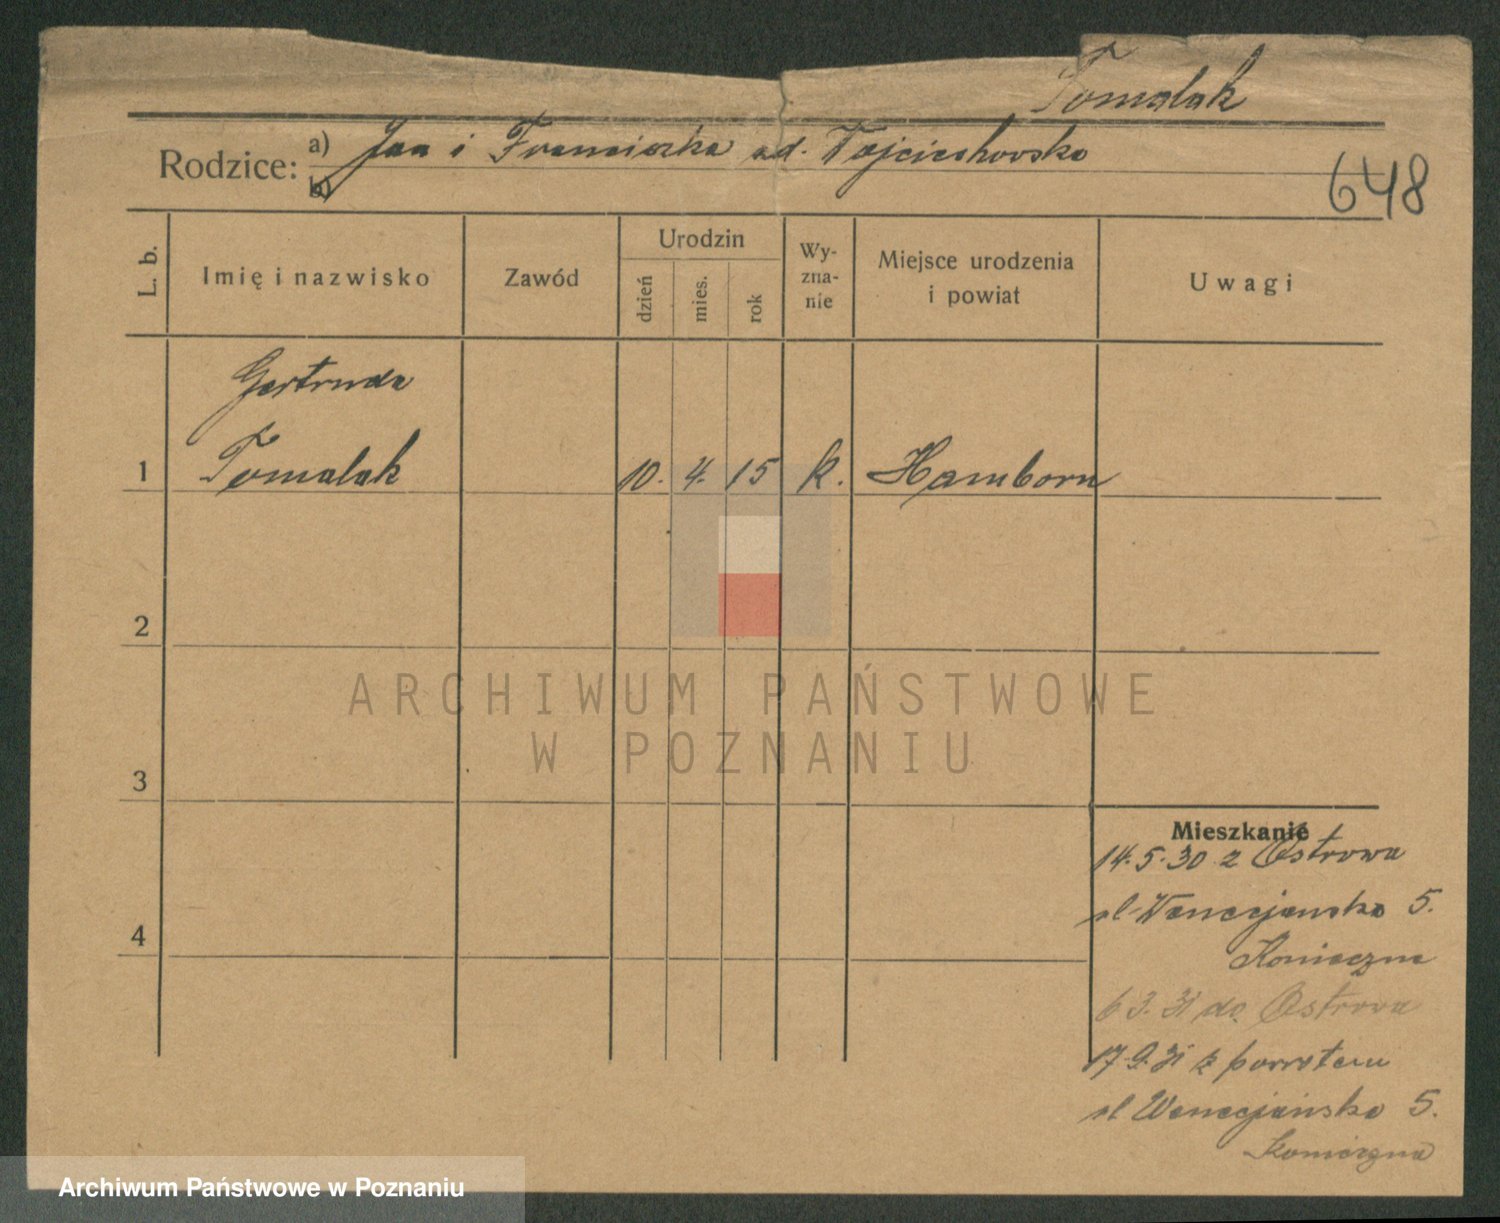 Tomalak
Rodzice: a) Jan i Franciszka ud. Wojciechowska
b)
648
L. b.
Imię i nazwisko
Zawód
Urodzin
dzień
mies.
rok
Wy-
zna-
nie
Miejsce urodzenia
i powiat
Uwagi
Gertruda
1 Tomalak 10. 4. 15 k. Hamborn
2
3
4
Mieszkanie
14.5.30 z Ostrowa
ul. Wenecjańska 5.
Konieczna
6 3. 31 do Ostrowa
17.9.31 z powrotem
ul Wenecjańska 5.
Konieczna
ARCHIWUM PAŃSTWOWE
W POZNANIU
Archiwum Państwowe w Poznaniu